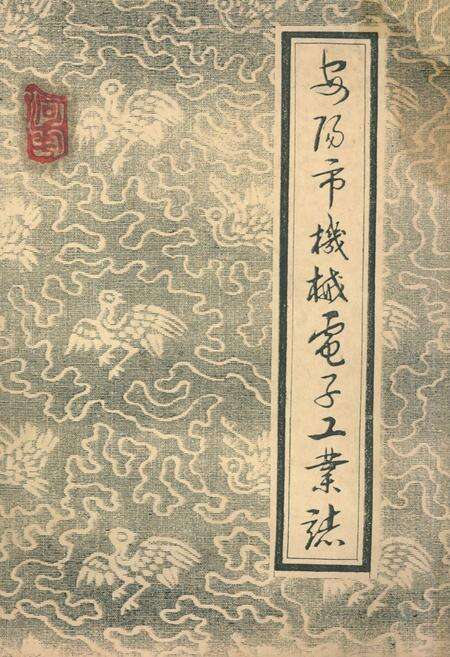 安阳市機械電子工業誌